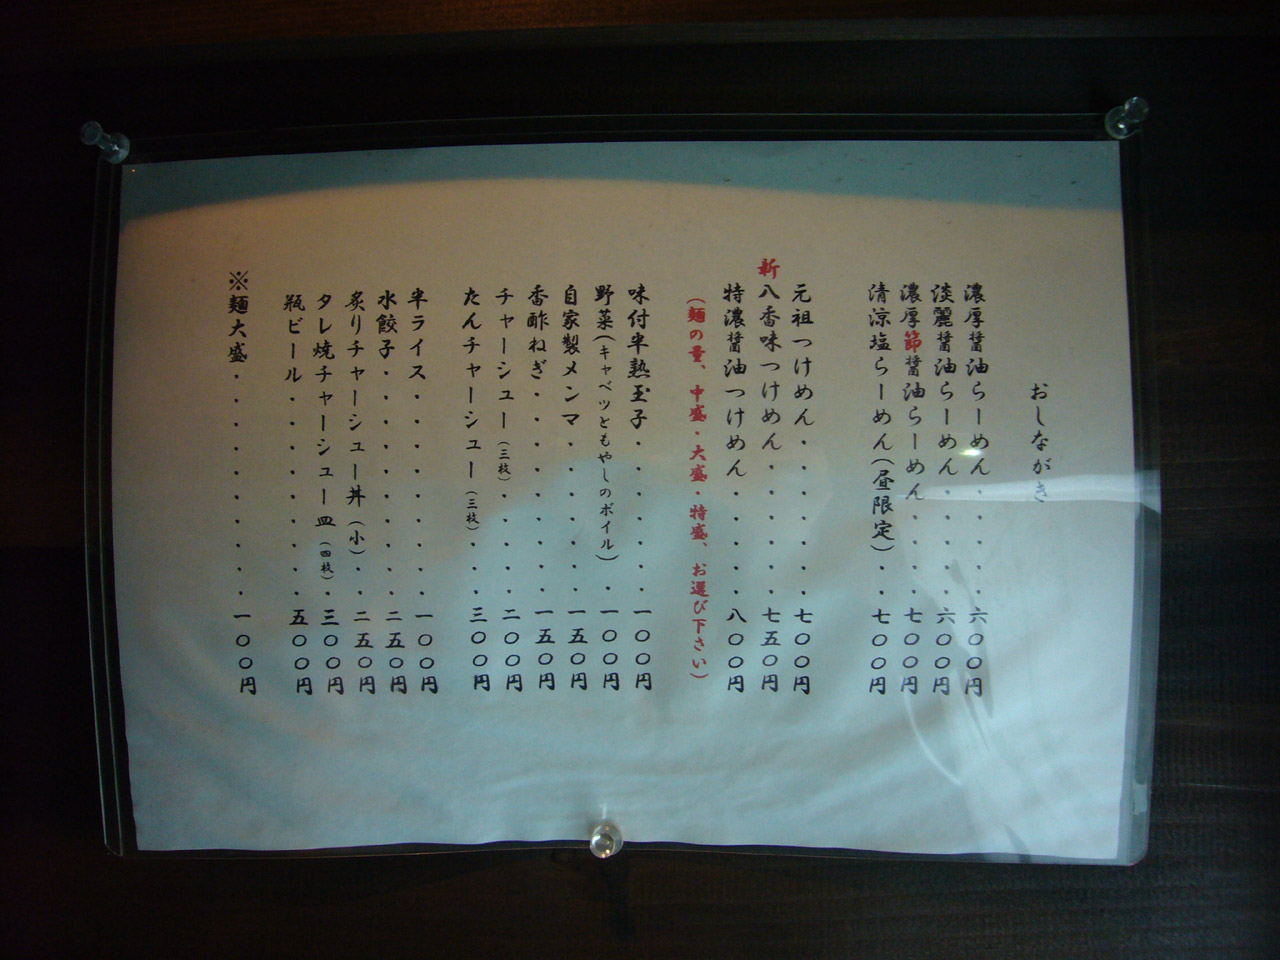 おしながき
濃厚醤油らーめん・・・・・六〇〇円
淡麗醤油らーめん・・・・・六〇〇円
濃厚節醤油らーめん・・・・七〇〇円
清涼塩らーめん(昼限定)・・七〇〇円
元祖つけめん・・・・・・・七〇〇円
新八香味つけめん・・・・・・七五〇円
特濃醤油つけめん・・・・・八〇〇円
(麺の量、中盛・大盛・特盛、お選び下さい)
味付半熟玉子・・・・・・・一〇〇円
野菜(キャベツともやしのボイル)・・一〇〇円
自家製メンマ・・・・・・・・一五〇円
香酢ねぎ・・・・・・・・・一五〇円
チャーシュー(三枚)・・・・・二〇〇円
たんチャーシュー(三枚)・・・三〇〇円
半ライス・・・・・・・・・一〇〇円
水餃子・・・・・・・・・・二五〇円
炙りチャーシュー丼(小)・・二五〇円
タレ焼チャーシュー皿(四枚)・三〇〇円
瓶ビール・・・・・・・・・五〇〇円
※麺大盛・・・・・・・・・・一〇〇円